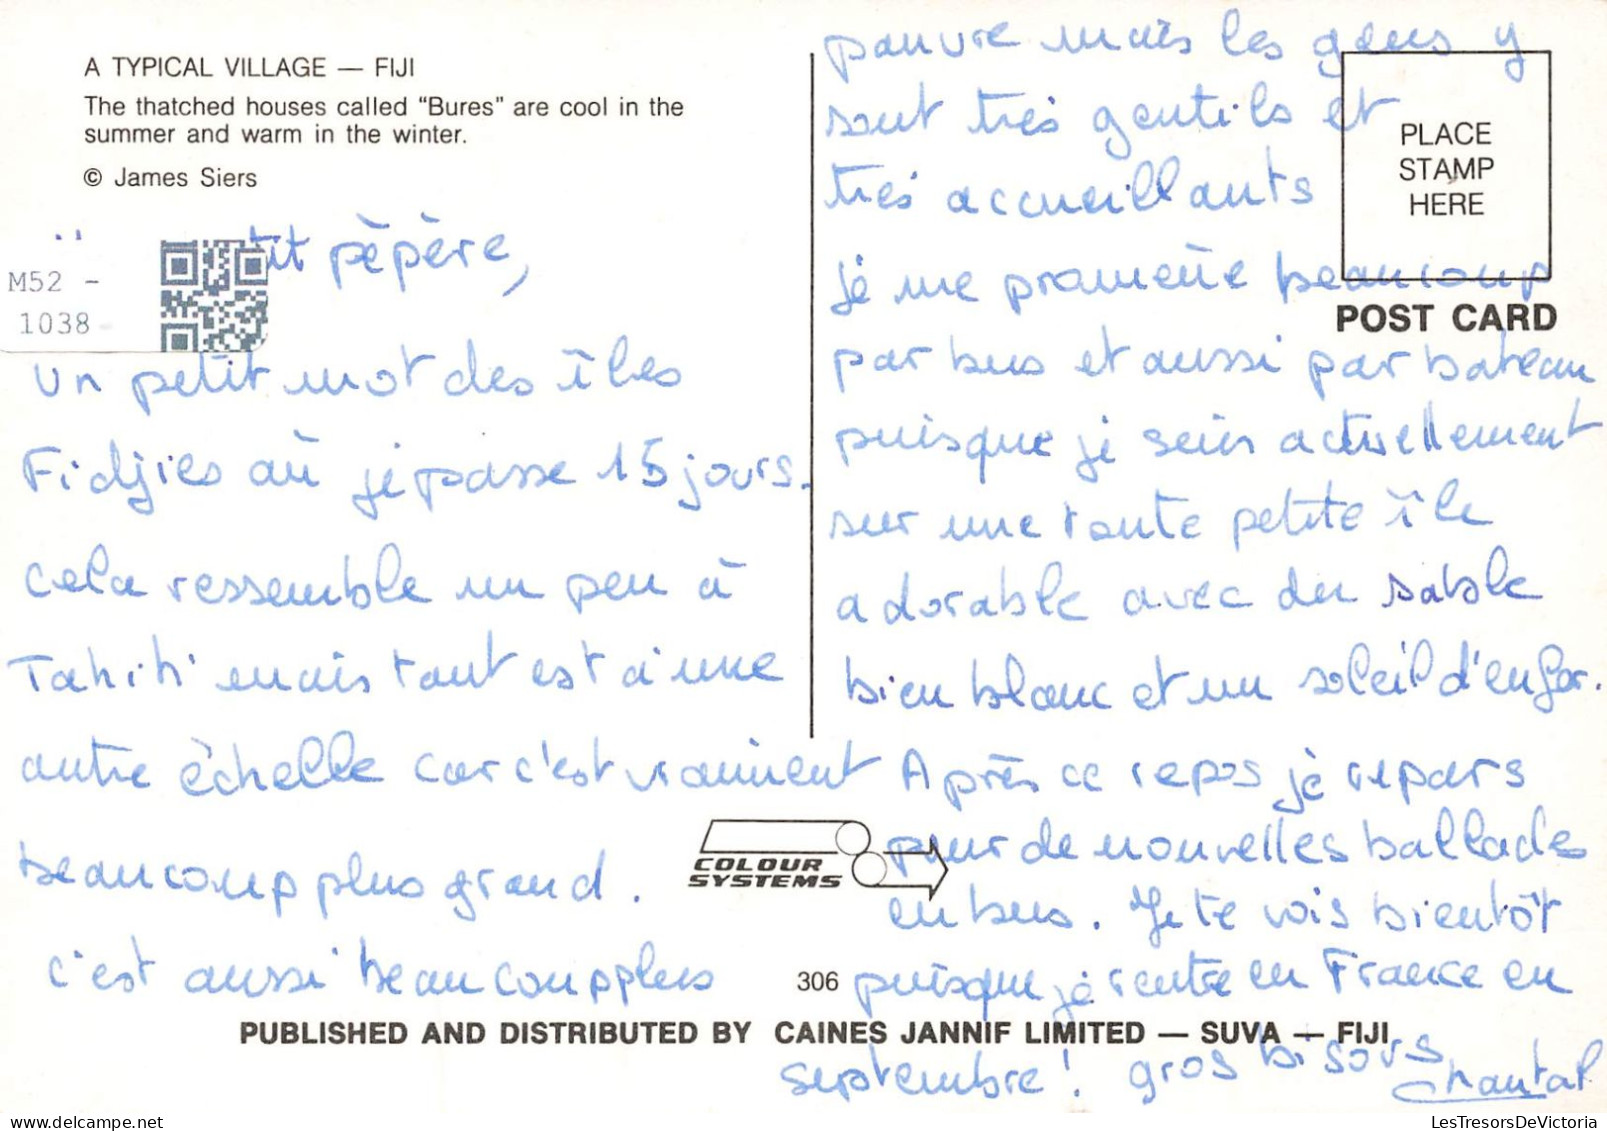 A TYPICAL VILLAGE — FIJI
The thatched houses called “Bures” are cool in the
summer and warm in the winter.
© James Siers
M52 -
1038
pèpère,
Un petit mot des îles
Fidjies où je passe 15 jours.
cela ressemble un peu à
Tahiti mais tout est à une
autre échelle car c'est vraiment
beaucoup plus grand.
c'est aussi beaucoup plus
pauvre mais les gens y
sont très gentils et
très accueillants
je me promène beaucoup
par bus et aussi par bateau
puisque je suis actuellement
sur une toute petite île
adorable avec du sable
bien blanc et un soleil d'enfer.
Après ce repos je repars
pour de nouvelles ballades
en bus. Je te vois bientôt
puisque je rentre en France en
septembre! gros bisous
Chantal
PLACE
STAMP
HERE
POST CARD
COLOUR
SYSTEMS
306
PUBLISHED AND DISTRIBUTED BY CAINES JANNIF LIMITED — SUVA — FIJI
LesTresorsDeVictoria